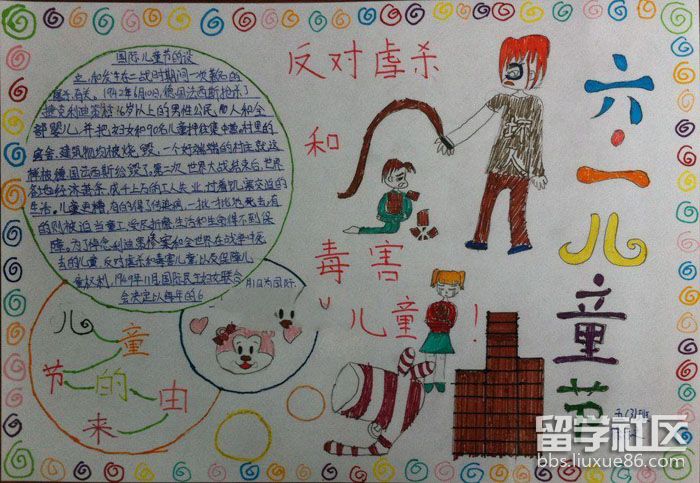 国际儿童节的设
立,和发生在二战时期间一次著名的
屠杀有关。1942年6月10日,德国法西斯枪杀了
捷克利迪策村16岁以上的男性公民,
部婴儿,并把妇女和90名儿童押往集中营。村里的
房舍、建筑物均被烧毁,一个好端端的村庄,就这
样被德国法西斯给毁了。第一次世界大战结束后,世界
各地经济萧条,成千上万的工人失业,过着饥寒交迫的
生活。儿童更糟,有的得了传染病,一批一批地死去;有
的则被迫当童工,受尽折磨,生活和生命得不到保
障。为了悼念利迪策惨案和全世界在战争中死
去的儿童,反对虐杀和毒害儿童,以及保障儿
童权利,1949年11月国际民主妇女联合
会决定以每年的6
月1日为国际
儿童节的由来
反对虐杀
和
毒害
儿童!
坏人
六·一儿童节
留学社区
bbs.liuxue86.com